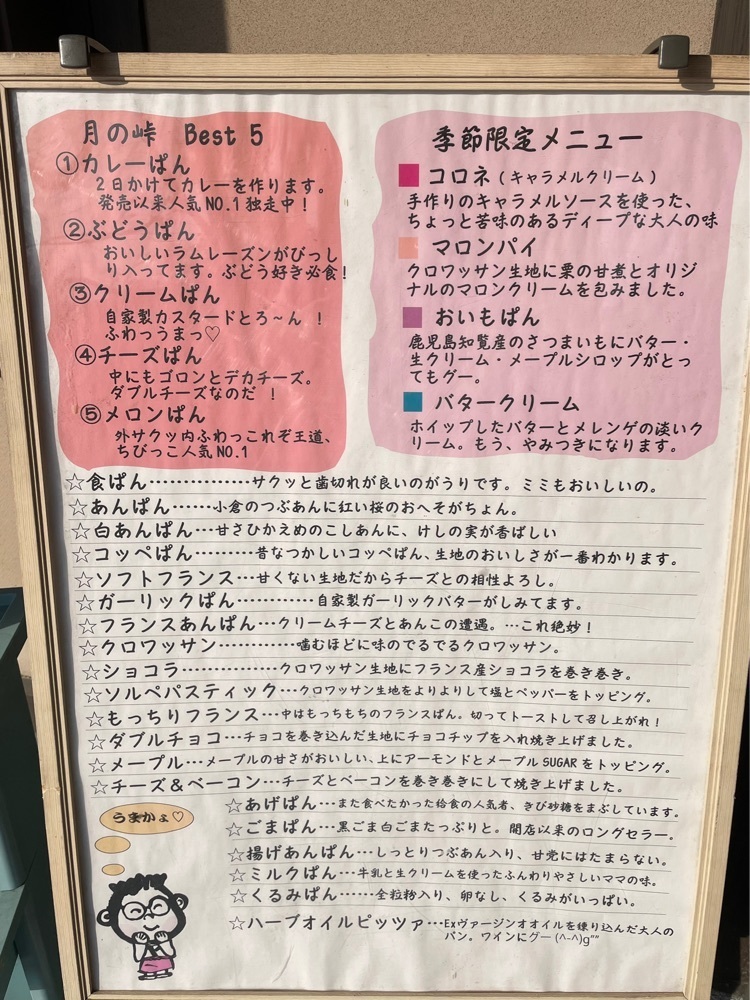 月の峠 Best 5
①カレーぱん
2日かけてカレーを作ります。
発売以来人気NO.1独走中！
②ぶどうぱん
おいしいラムレーズンがびっし
り入ってます。ぶどう好き必食！
③クリームぱん
自家製カスタードとろ～ん ！
ふわっうまっ♡
④チーズぱん
中にもゴロンとデカチーズ。
ダブルチーズなのだ ！
⑤メロンぱん
外サクッ内ふわっこれぞ王道、
ちびっこ人気NO.1
季節限定メニュー
コロネ（キャラメルクリーム）
手作りのキャラメルソースを使った、
ちょっと苦味のあるディープな大人の味
マロンパイ
クロワッサン生地に栗の甘煮とオリジ
ナルのマロンクリームを包みました。
おいもぱん
鹿児島知覧産のさつまいもにバター・
生クリーム・メープルシロップがとっ
てもグー。
バタークリーム
ホイップしたバターとメレンゲの淡いク
リーム。もう、やみつきになります。
☆食ぱん……………サクッと歯切れが良いのがうりです。ミミもおいしいの。
☆あんぱん……小倉のつぶあんに紅い桜のおへそがちょん。
☆白あんぱん…甘さひかえめのこしあんに、けしの実が香ばしい
☆コッペぱん………昔なつかしいコッペぱん、生地のおいしさが一番わかります。
☆ソフトフランス…甘くない生地だからチーズとの相性よろし。
☆ガーリックぱん…………自家製ガーリックバターがしみてます。
☆フランスあんぱん…クリームチーズとあんこの遭遇。…これ絶妙！
☆クロワッサン…………噛むほどに味のでるでるクロワッサン。
☆ショコラ……………クロワッサン生地にフランス産ショコラを巻き巻き。
☆ソルペパスティック…クロワッサン生地をよりよりして塩とペッパーをトッピング。
☆もっちりフランス…中はもっちもちのフランスぱん。切ってトーストして召し上がれ！
☆ダブルチョコ…チョコを巻き込んだ生地にチョコチップを入れ焼き上げました。
☆メープル…メープルの甘さがおいしい、上にアーモンドとメープルSUGARをトッピング。
☆チーズ＆ベーコン…チーズとベーコンを巻き巻きにして焼き上げました。
☆あげぱん…また食べたかった給食の人気者、きび砂糖をまぶしています。
☆ごまぱん…黒ごま白ごまたっぷりと。開店以来のロングセラー。
☆揚げあんぱん…しっとりつぶあん入り、甘党にはたまらない。
☆ミルクぱん…牛乳と生クリームを使ったふんわりやさしいママの味。
☆くるみぱん……全粒粉入り、卵なし、くるみがいっぱい。
☆ハーブオイルピッツァ…Exヴァージンオオイルを練り込んだ大人の
パン。ワインにグー(^-^)g""
うまかょ♡